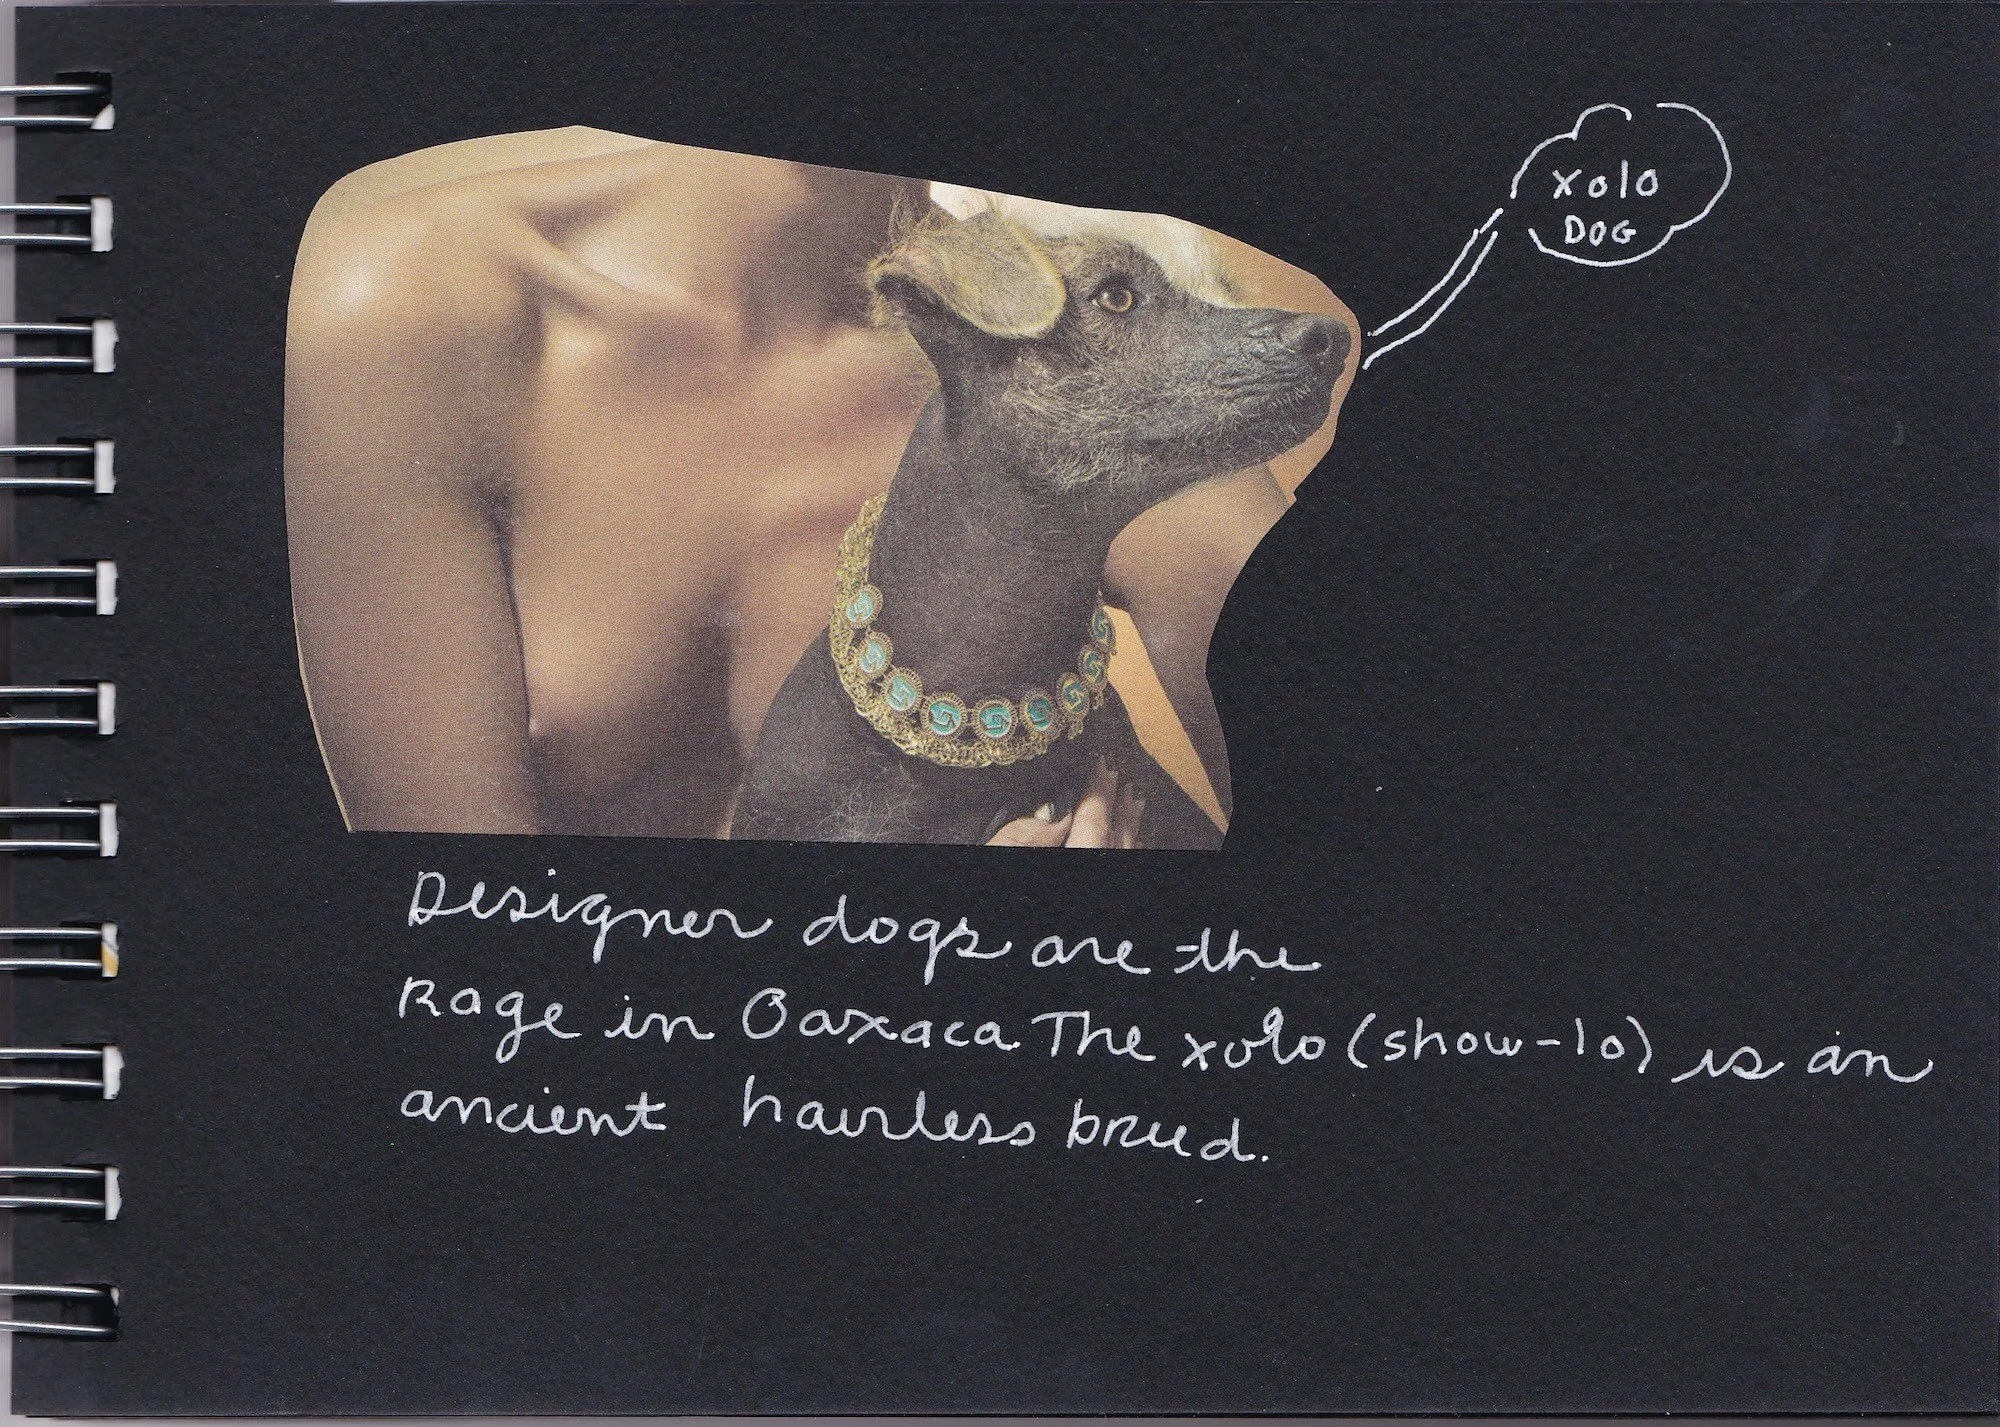 xolo
DOG
Designer dogs are the
Rage in Oaxaca. The xolo (show-lo) is an
ancient hairless breed.